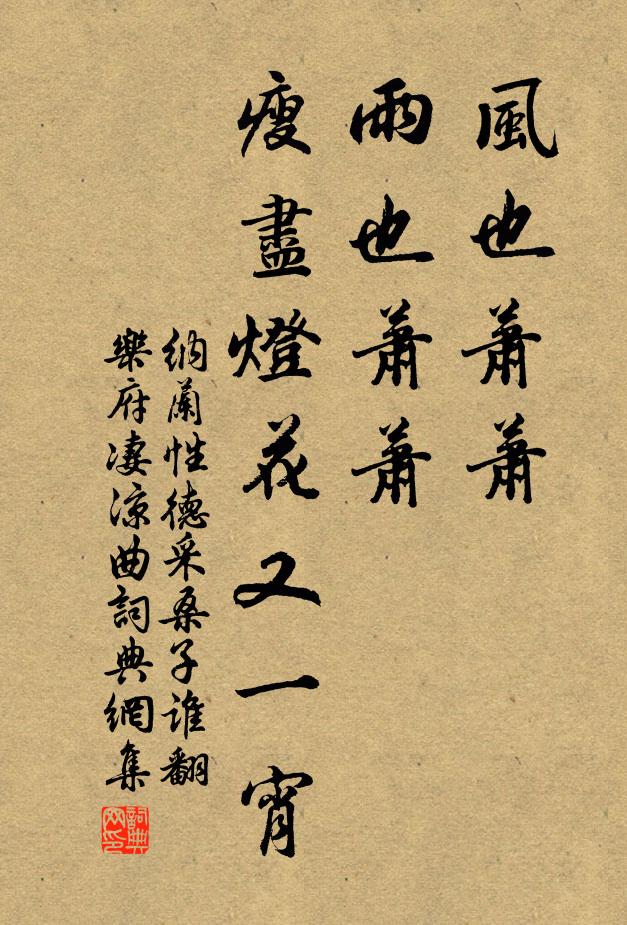 風也蕭蕭
雨也蕭蕭
瘦盡燈花又一宵
納蘭性德采桑子誰翻
樂府凄涼曲詞典網集
詞典网印